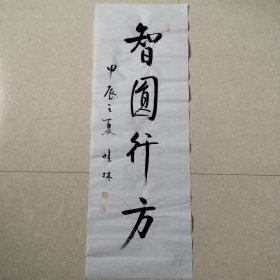 智圆行方
甲辰之夏